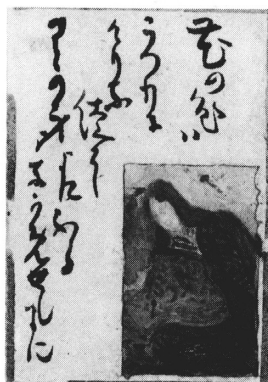 花の色ハ
うつりに
けりな
徒に
わか身
世にふる
なかめせしまに